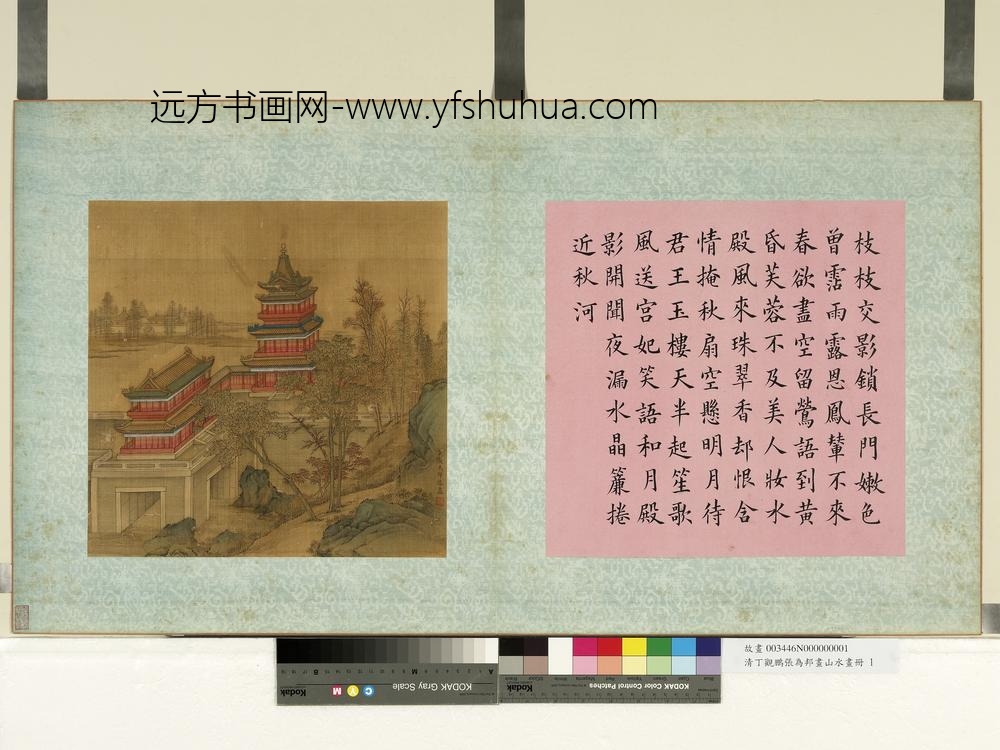 远方书画网-www.yfshuhua.com
枝枝交影鎖長門嫩色
曾霑雨露恩鳳輦不來
春欲盡空留鶯語到黃
昏芙蓉不及美人妝水
殿風來珠翠香却恨含
情掩秋扇空懸明月待
君王玉樓天半起笙歌
風送宮妃笑語和月殿
影開聞夜漏水晶簾捲
近秋河
故畫 003446N000000001
清丁觀鵬張為邦畫山水畫冊 1
KODAK Gray Scale
Kodak
C Y M
A
M
B
KODAK Color Control Patches
Kodak